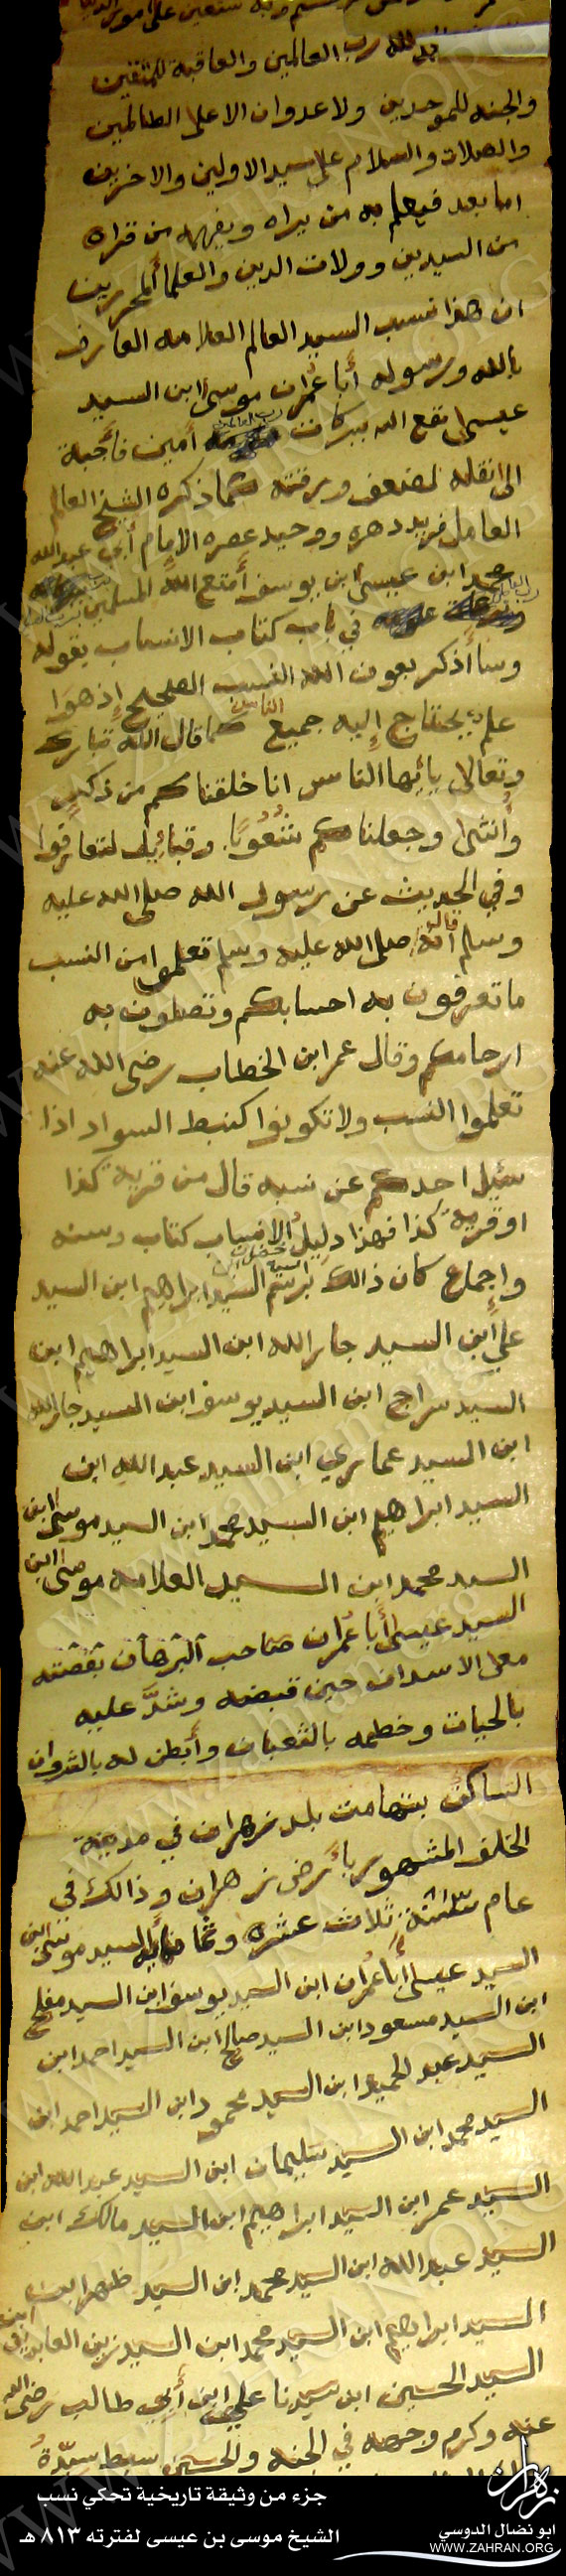 الحمد لله رب العالمين والعاقبة للمتقين
والجنه للموحدين ولا عدوان الا على الظالمين
والصلات والسلام على سيد الاولين والاخرين
اما بعد فيعلم به من يراه ويفهمه من قراه
من السيدين وولات الدين والعلما المحررين
ان هذا نسب السيد العالم العلامه العارف
بالله ورسوله أبا عمران موسى ابن السيد
عيسى نفع الله ببركات رب العالمين أمين فأجبة
الى انقله لضعف ورقته كما ذكره الشيخ العالم
العامل فريد دهره ووحيد عصره الإمام أبي عبد الله
محمد ابن عيسى ابن يوسف أمتع الله المسلمين
في باب كتاب الانساب بقوله
وسأذكر بعون الله النسب الصحيح إذ هوا
علم يحتاج إليه جميع الناس كما قال الله تبارك
وتعالى يائيها الناس انا خلقناكم من ذكرٍ
وأنثى وجعلناكم شُعُوبًا وقبائيل لتعارفوا
وفي الحديث عن رسول الله صلى الله عليه
وسلم انه قال صلى الله عليه وسلم تعلموا من النسب
ما تعرفون به احسابكم وتصلون به
ارحامكم وقال عمر ابن الخطاب رضي الله عنه
تعلموا النسب ولا تكونوا كنبط السواد اذا
سئيل احدكم عن نسبه قال من قرية كذا
او قرية كذا فهذا دليل الانساب كتاب وسنه
وإجماع كان ذالك برسم السيد ابراهيم ابن السيد
علي ابن السيد جار الله ابن السيد ابراهيم ابن
السيد سراج ابن السيد يوسف ابن السيد جار الله
ابن السيد عماري ابن السيد عبد الله ابن
السيد ابراهيم ابن السيد محمد ابن السيد موسى ابن
السيد محمد ابن السيد العلامه موسى ابن
السيد عيسى أبا عمران صاحب البرهان بقصته
مع الاسدان حين قبضه وشدَّ عليه
بالحيات وخطمه بالثعبان وأبطن له بالثدوان
الساكن بتهامت بلد زهران في مدينة
الخلف المشهور بأرض زهران وذالك في
عام سنة ثلاث عشره وثمانمايه السيد موسى ابن
السيد عيسى أبا عمران ابن السيد يوسف ابن السيد مفلح
ابن السيد مسعود ابن السيد صالح ابن السيد احمد ابن
السيد عبد الحميد ابن السيد محمود ابن السيد احمد ابن
السيد محمد ابن السيد سليمان ابن السيد عبد الله ابن
السيد عمر ابن السيد ابراهيم ابن السيد مالك ابن
السيد عبد الله ابن السيد محمد ابن السيد طهر ابن
السيد ابراهيم ابن السيد محمد ابن السيد زين العابدين ابن
السيد الحسين ابن سيدنا علي ابن أبي طالب رضي الله
عنه وكرم وجهه في الجنه والحسين سبط سيّدة
جزء من وثيقة تاريخية تحكي نسب
الشيخ موسى بن عيسى لفترته ٨١٣ هـ
زهران
ابو نضال الدوسي
WWW.ZAHRAN.ORG